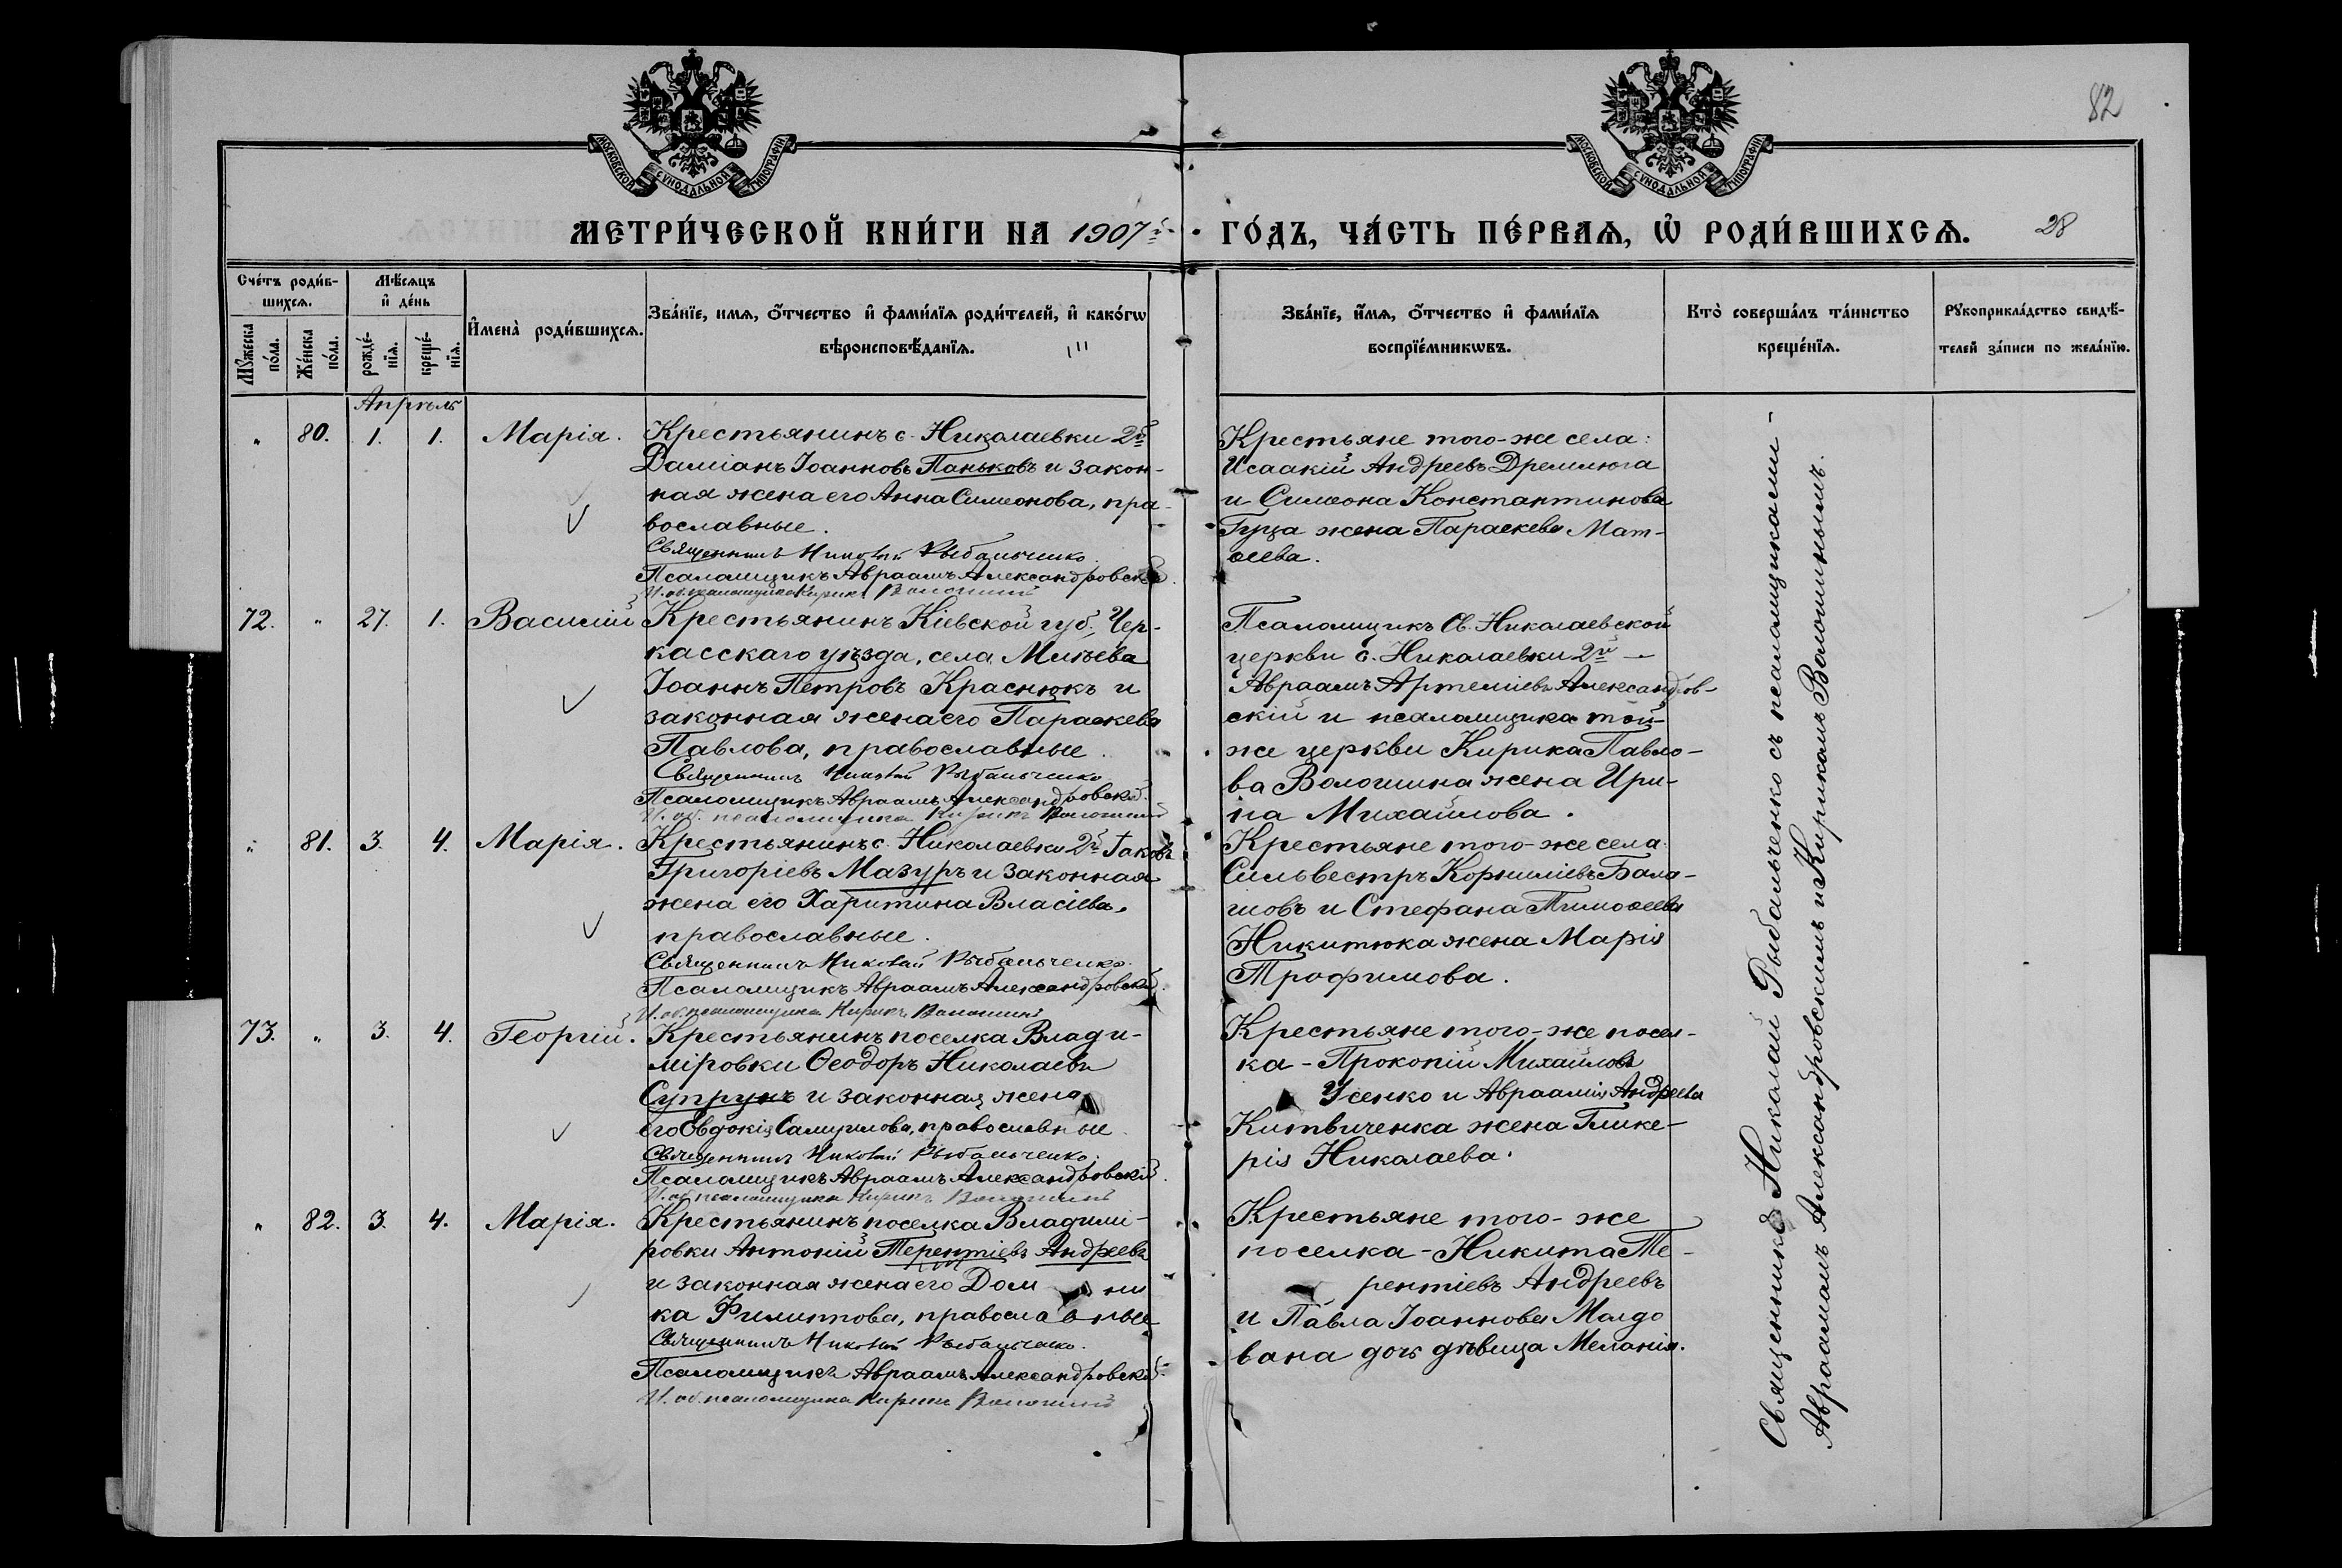 82
МОСКОВСКОЙ СѴНОДАЛЬНОЙ ТИПОГРАФІИ
МОСКОВСКОЙ СѴНОДАЛЬНОЙ ТИПОГРАФІИ
МЕТРИ́ЧЕСКОЙ КНИ́ГИ НА 1907й ГО́ДЪ, ЧА́СТЬ ПЕ́РВАѦ, Ѡ҆ РОДИ́ВШИХСѦ. 28
Сче́тъ роди́в-
шихсѧ.
Мꙋ́жеска по́ла.
Же́нска по́ла.
Мѣ́сѧцъ
и҆ де́нь
рожде́-
нїѧ.
креще́-
нїѧ.
И҆мена̀ роди́вшихсѧ.
Зва́нїе, имѧ, ѻ҆́тчество и҆ фами́лїѧ роди́телей, и҆ како́гѡ
вѣроисповѣ́данїѧ.
Зва́нїе, и҆́мѧ, ѻ҆́тчество и҆ фами́лїѧ
воспрїе́мникѡвъ.
Кто̀ соверша́лъ та́инство
креще́нїѧ.
Рꙋкоприкла́дство свидѣ́-
телей за́писи по жела́нїю.
Апрѣль
" 80. 1. 1. Марія.
Крестьянинъ с. Николаевки 2й
Даміанъ Іоанновъ Паньковъ и закон-
ная жена его Анна Симеонова, пра-
вославные.
Священникъ Николай Рыбальченко.
Псаломщикъ Авраамъ Александровскій.
И. об. псаломщика Кирикъ Волошинъ
Крестьяне того-же села:
Исаакій Андреевъ Дремлюга
и Симеона Константинова
Гуца жена Параскева Мат-
ѳеева.
72. " 27. 1. Василій
Крестьянинъ Кіевской губ., Чер-
касскаго уѣзда, села Млѣева
Іоаннъ Петровъ Краснюкъ и
законная жена его Параскева
Павлова, православные.
Священникъ Николай Рыбальченко
Псаломщикъ Авраамъ Александровскій.
И. об. псаломщика Кирикъ Волошинъ
Псаломщикъ Св. Николаевской
церкви с. Николаевки 2й —
Авраамъ Артеміевъ Александров-
скій и псаломщика той-
же церкви Кирика Павло-
ва Волошина жена Ири-
на Михайлова.
" 81. 3. 4. Марія.
Крестьянинъ с. Николаевки 2й Іаковъ
Григоріевъ Мазуръ и законная
жена его Харитина Власіева,
православные.
Священникъ Николай Рыбальченко.
Псаломщикъ Авраамъ Александровскій.
И. об. псаломщика Кирикъ Волошинъ
Крестьяне того-же села:
Сильвестръ Корниліевъ Бала-
шовъ и Стефана Тимоѳеева
Никитюка жена Марія
Трофимова.
73. " 3. 4. Георгій.
Крестьянинъ поселка Влади-
міровки Ѳеодоръ Николаевъ
Супрунъ и законная жена
его Евдокія Самуилова, православные
Священникъ Николай Рыбальченко.
Псаломщикъ Авраамъ Александровскій.
И. об. псаломщика Кирикъ Волошинъ
Крестьяне того-же посел-
ка - Прокопій Михайловъ
Усенко и Авраамія Андреева
Китвиченка жена Глике-
рія Николаева.
" 82. 3. 4. Марія.
Крестьянинъ поселка Владимі-
ровки Антоній Терентіевъ Андреевъ
и законная жена его Дом ни
ка Филиппова, православные
Священникъ Николай Рыбальченко.
Псаломщикъ Авраамъ Александровскій.
И. об. псаломщика Кирикъ Волошинъ
Крестьяне того-же
поселка - Никита Те-
рентіевъ Андреевъ
и Павла Іоаннова Молдо
вана дочь дѣвица Меланія.
Священникъ Николай Рыбальченко съ псаломщиками -
Авраамомъ Александровскимъ и Кирикомъ Волошинымъ.